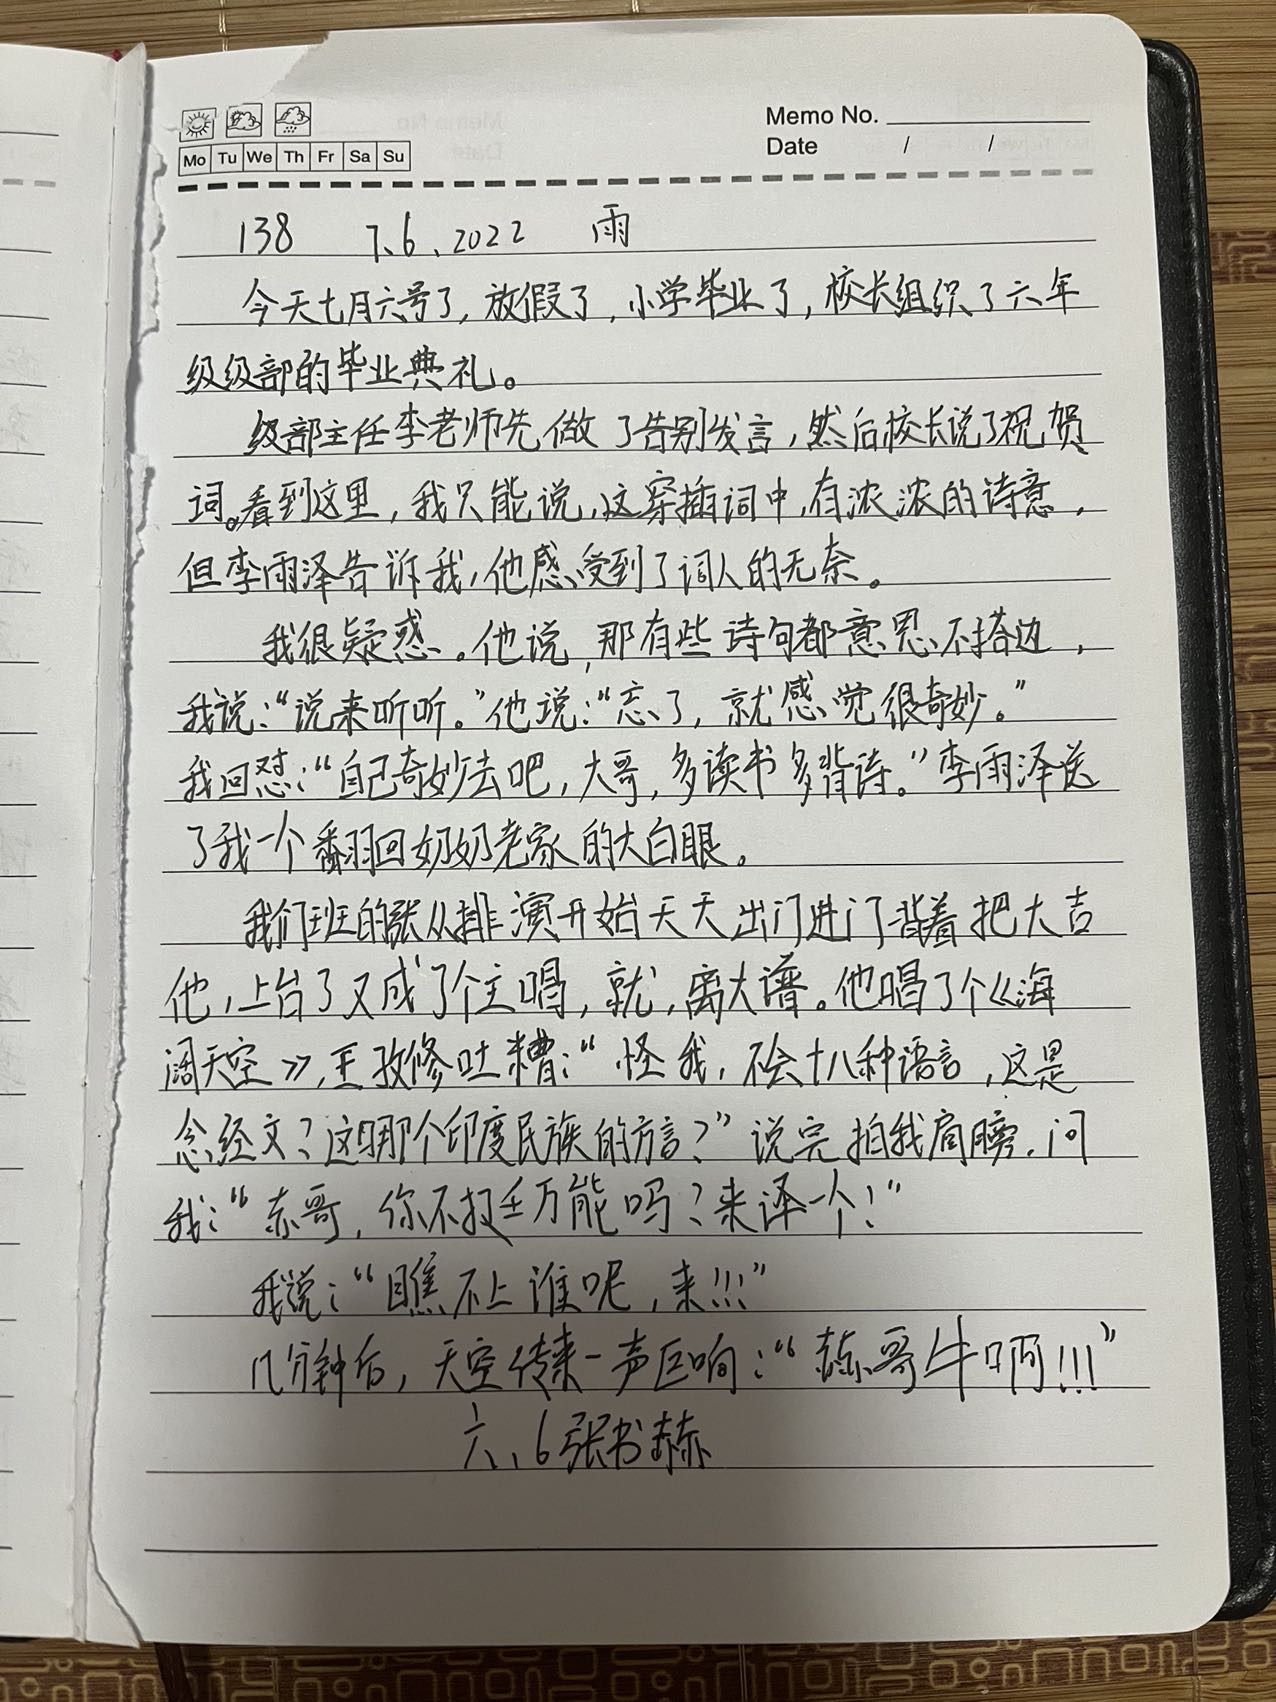 Memo No.
Mo Tu We Th Fr Sa Su
Date / /
138 7.6.2022 雨
今天七月六号了，放假了，小学毕业了，校长组织了六年
级级部的毕业典礼。
级部主任李老师先做了告别发言，然后校长说了祝贺
词。看到这里，我只能说，这穿插词中，有浓浓的诗意，
但李雨泽告诉我，他感受到了词人的无奈。
我很疑惑。他说，那有些诗句都意思不搭边，
我说：“说来听听。”他说：“忘了，就感觉很奇妙。”
我回怼：“自己奇妙去吧，大哥，多读书多背诗。”李雨泽送
了我一个翻回奶奶老家的大白眼。
我们班的张从排演开始天天出门进门背着把大吉
他，上台了又成了个主唱，就，离大谱。他唱了个《海
阔天空》，王孜修吐糟：“怪我，不会十八种语言，这是
念经文？这是那个印度民族的方言？”说完拍我肩膀，问
我：“赫哥，你不挺全万能吗？来译一个！”
我说：“瞧不上谁呢，来!!!”
几分钟后，天空传来一声巨响：“赫哥牛啊!!!”
六、6张书赫